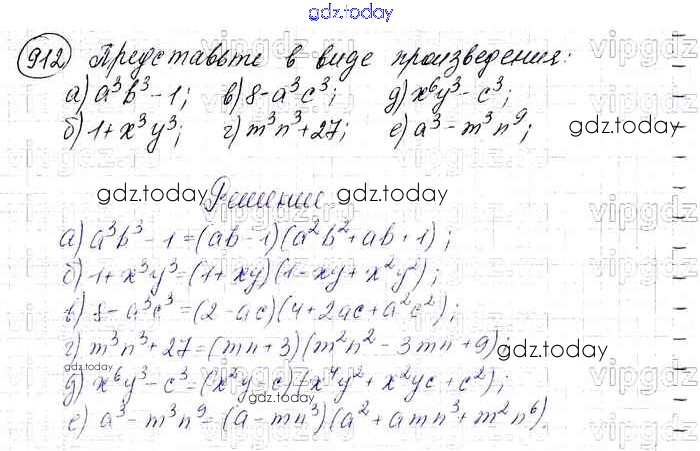 gdz.today
912 Представьте в виде произведения:
а) a³b³ - 1; в) 8 - a³c³; д) x⁶y³ - c³;
б) 1 + x³y³; г) m³n³ + 27; е) a³ - m³n⁹; gdz.today
gdz.today Решение gdz.today
а) a³b³ - 1 = (ab - 1)(a²b² + ab + 1);
б) 1 + x³y³ = (1 + xy)(1 - xy + x²y²);
в) 8 - a³c³ = (2 - ac)(4 + 2ac + a²c²);
г) m³n³ + 27 = (mn + 3)(m²n² - 3mn + 9); gdz.today
д) x⁶y³ - c³ = (x²y - c)(x⁴y² + x²yc + c²);
е) a³ - m³n⁹ = (a - mn³)(a² + amn³ + m²n⁶).
gdz.today